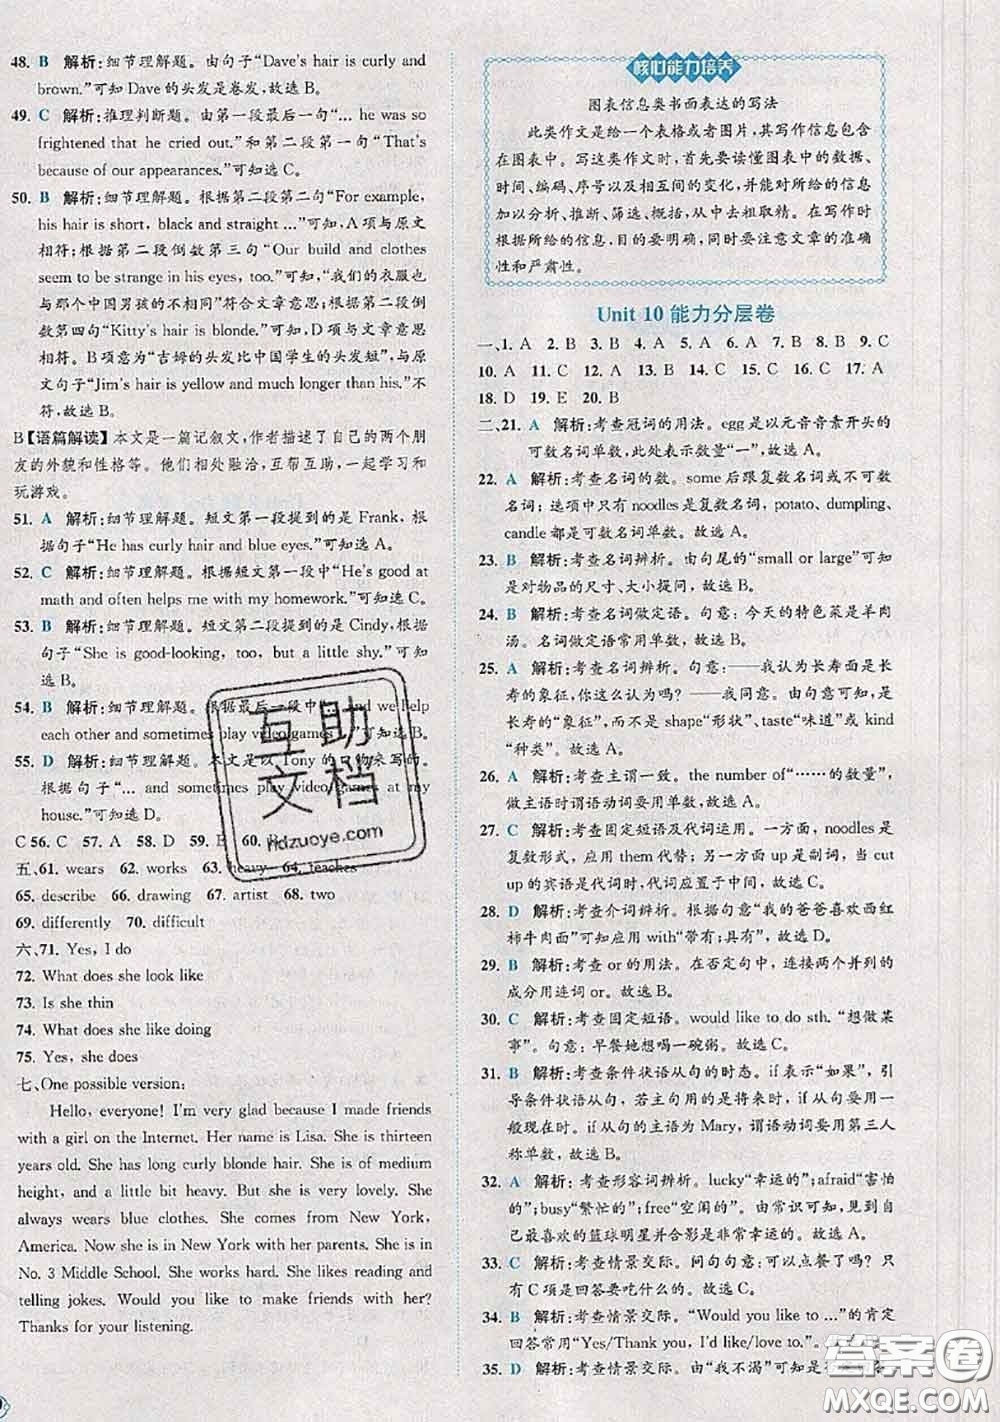 48. B 解析:细节理解题。由句子“Dave's hair is curly and
brown.”可知 Dave 的头发是卷发,故选B。
49. C 解析:推理判断题。由第一段最后一句“... he was so
frightened that he cried out.”和第二段第一句“That's
because of our appearances.”可知选 C。
50. B 解析:细节理解题。根据第二段第二句“For example,
his hair is short, black and straight ...”可知,A 项与原文
相符;根据第二段倒数第三句“Our build and clothes
seem to be strange in his eyes, too.”可知,“我们的衣服也
与那个中国男孩的不一样”符合文章意思。根据第二段倒
数第四句“Kitty's hair is blonde.”可知,D 项与文章意思
相符。B 项意为“吉姆的头发比中国学生的头发短”,与原
文句子“Jim's hair is yellow and much longer than his.”不
符,故选 B。
B【语篇解读】本文是一篇记叙文,作者描述了自己的两个朋
友的外貌和性格等。他们相处融洽,互帮互助,一起学习和
玩游戏。
51. A 解析:细节理解题。短文第一段提到的是 Frank,根
据句子“He has curly hair and blue eyes.”可知选 A。
52. C 解析:细节理解题。根据短文第一段中“He's good at
math and often helps me with my homework.”可知选 C。
53. B 解析:细节理解题。短文第二段提到的是 Cindy,根据
句子“She is good-looking, too, but a little shy.”可知
选 B。
54. B 解析:细节理解题。根据最后一段中“... and we help
each other and sometimes play video games ...”可知选 B。
55. D 解析:细节理解题。本文是以 Tony 的口吻来写的。
根据句子“... and sometimes play video games at my
house.”可知选 D。
C 56. C 57. A 58. D 59. E 60. B
五、61. wears 62. works 63. heavy 64. teaches
65. describe 66. drawing 67. artist 68. two
69. differently 70. difficult
六、71. Yes, I do
72. What does she look like
73. Is she thin
74. What does she like doing
75. Yes, she does
七、One possible version:
Hello, everyone! I'm very glad because I made friends
with a girl on the Internet. Her name is Lisa. She is thirteen
years old. She has long curly blonde hair. She is of medium
height, and a little bit heavy. But she is very lovely. She
always wears blue clothes. She comes from New York,
America. Now she is in New York with her parents. She is in
No. 3 Middle School. She works hard. She likes reading and
telling jokes. Would you like to make friends with her?
Thanks for your listening.
核心能力培养
图表信息类书面表达的写法
此类作文是给一个表格或者图片,其写作信息包含
在图表中。写这类作文时,首先要读懂图表中的数据、
时间、编码、序号以及相互间的变化,并能对所给的信息
加以分析、推断、筛选、概括,从中去粗取精。在写作时
根据所给的信息,目的要明确,同时要注意文章的准确
性和严肃性。
Unit 10 能力分层卷
一、1. A 2. B 3. B 4. C 5. A 6. B 7. A 8. B 9. C
10. A 11. C 12. C 13. C 14. B 15. B 16. C 17. A
18. D 19. E 20. B
二、21. A 解析:考查冠词的用法。egg是以元音音素开头的
可数名词单数,此处表示数量“一”。故选 A。
22. A 解析:考查名词的数。some 后跟复数名词或不可数
名词;选项中只有 noodles是复数名词,potato, dumpling,
candle 都是可数名词单数,故选 A。
23. B 解析:考查名词辨析。由句尾的“small or large”可知
是对物品的尺寸、大小提问。故选 B。
24. B 解析:考查名词做定语。句意:今天的特色菜是羊肉
汤。名词做定语常用单数,故选 B。
25. A 解析:考查名词辨析。句意:——我认为长寿面是长
寿的象征,你这么认为吗?——我同意。由句意可知,是
长寿的“象征”,而不是 shape“形状”、taste“味道”或 kind
“种类”。故选 A。
26. A 解析:考查主谓一致。the number of“……的数量”,
做主语时谓语动词要用单数。故选 A。
27. C 解析:考查固定短语及代词运用。一方面,noodles 是
复数形式,应用 them 代替;另一方面 up 是副词,当 cut
up 的宾语是代词时,代词应置于中间,故选 C。
28. D 解析:考查介词辨析。根据句意“我的爸爸喜欢西红
柿牛肉面”可知应用 with“带有;具有”,故选 D。
29. B 解析:考查 or 的用法。在否定句中,连接两个并列的
成分用连词 or。故选 B。
30. C 解析:考查固定短语。would like to do sth. “想做某
事”。句意:早餐她想喝一碗粥。故选 C。
31. B 解析:考查条件状语从句的时态。if 表示“如果”,引
导条件状语从句。若主句用的是将来时,if 从句要用一
般现在时。if 从句的主语为 Mary,谓语动词要用第三人
称单数,故选 B。
32. A 解析:考查形容词辨析。lucky“幸运的”;afraid“害怕
的”;busy“繁忙的”;free“空闲的”。由常识可知,见到自
己最喜欢的篮球明星并合影是非常幸运的。故选 A。
33. C 解析:考查情景交际。问句句意:晚餐你想吃什么?
只有 C 项是回答要吃什么的。故选 C。
34. B 解析:考查情景交际。“Would you like to ...”的肯定
回答常用“Yes/Thank you, I'd like/love to.”。故选 B。
35. D 解析:考查情景交际。由“我不渴”可知是否定
互助
文档
hdzuoye.com
答案圈
MXQE.COM